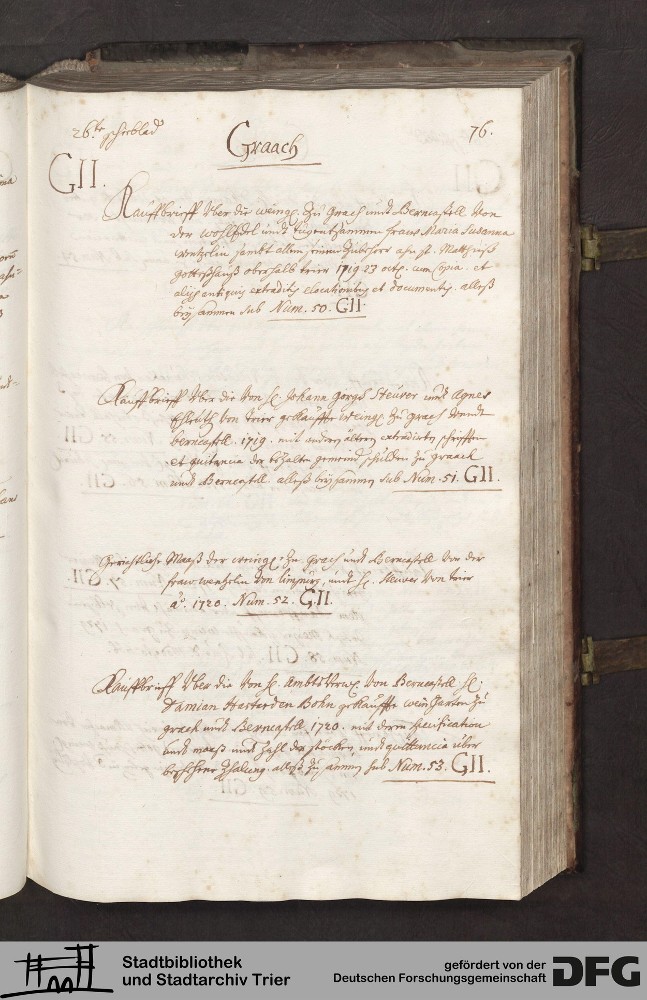 26te schieblad
76.
Graach
GII.
Kauffbrieff über die weing. zu grach undt Berncastell von
der wohledel und tugentsammen frawe Maria Susanna
wentzelin sambt allem seinem zubehoer ahn st. Mattheiß
gotteßhauß oberhalb trier 1719 23 octb. cum copia. et
alijs antiquis extraditis elocationibus et documentis. alleß
beysammen sub Num. 50. GII.
Kauffbrieff über die von H. Johann gorgh Steuver undt Agnes
von trier gekauffte weing. zu grach undt
berncastell. 1719. mit andern ältern extradirten schrifften
et quitancia der bezalten gemeind schulden zu graach
undt Berncastell. alleß beysammen sub Num. 51. GII.
Gerichtliche Maaß der weing. zu grach undt Berncastell von der
fraw wentzelin von limpurg, undt H. steuver von trier
ao. 1720. Num. 52. GII.
Kauffbrieff über die von H. Ambts von Berncastell H.
Damian Hartarden Bohn gekauffte weingarten zu
grach undt Berncastell 1720. mit deren specification
undt maaß undt zahl der stöcken, undt quittancia über
beschehene zhalung. alleß zusammen sub Num. 53. GII.
Stadtbibliothek
und Stadtarchiv Trier
gefördert von der
Deutschen Forschungsgemeinschaft
DFG